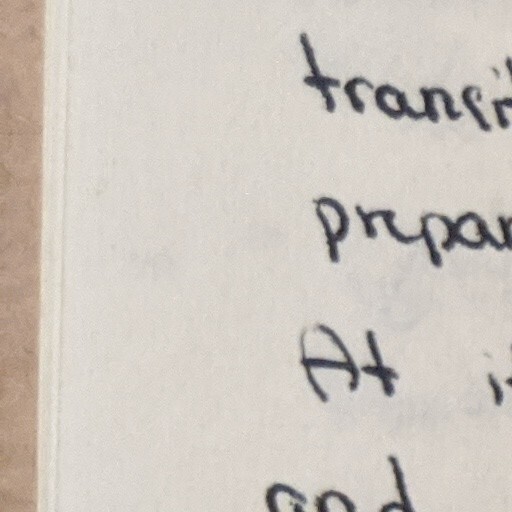 transi
prepar
At it
and